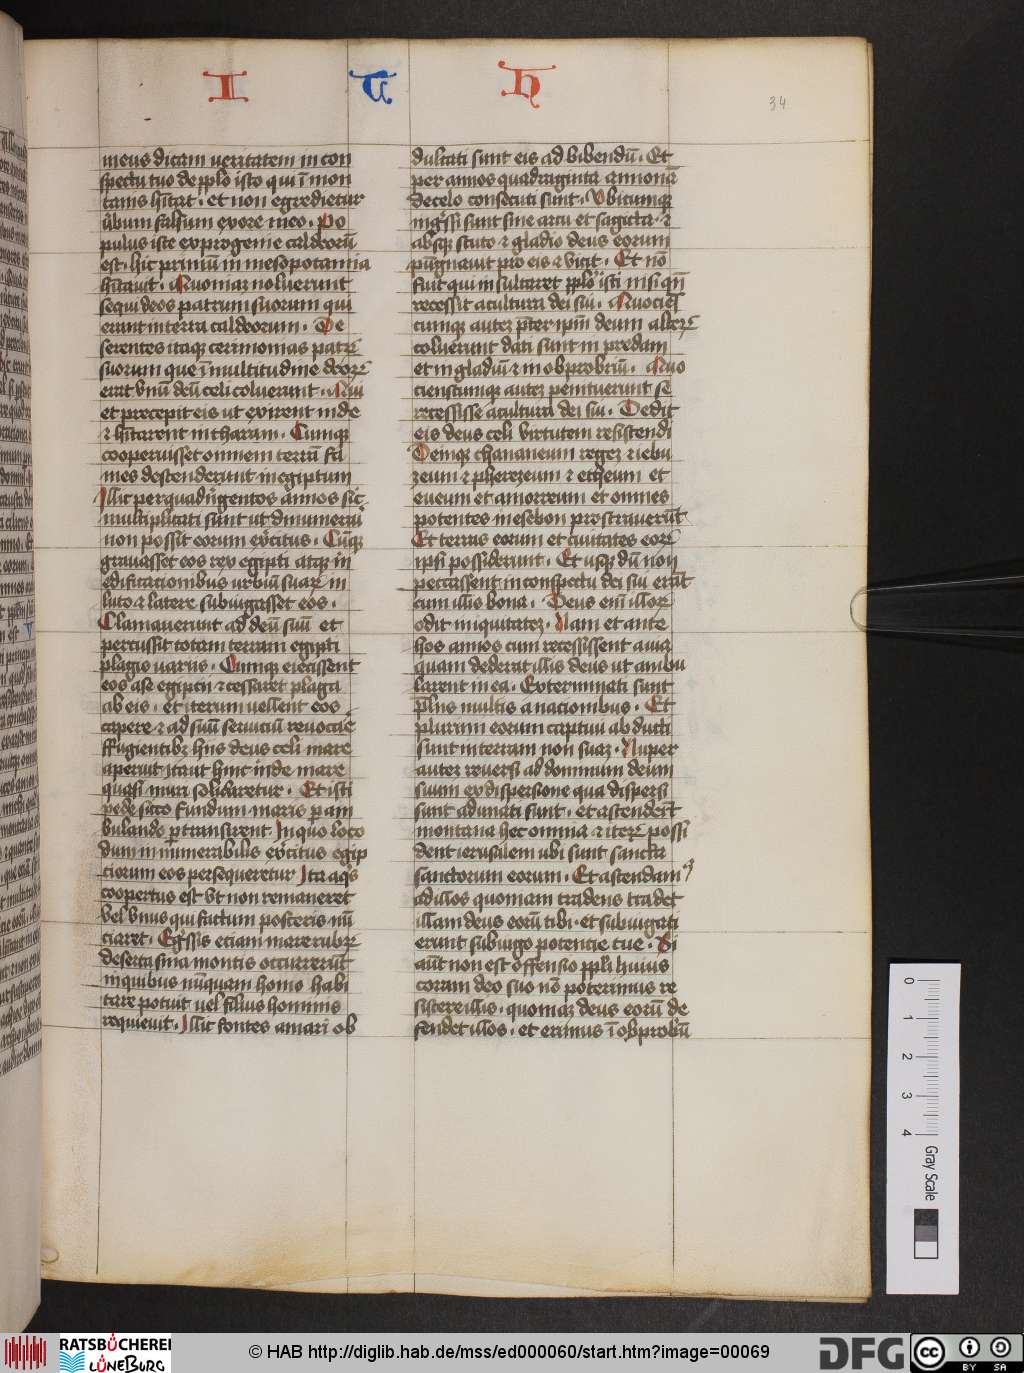 I U H
34
meus dicam ueritatem in con
spectu tuo de pplo isto qui ī mon
tanis hītat . et non egredietur
ūbum falsum ex ore meo . Po
pulus iste ex progenie caldeorū
est . hic primū in mesopotamia
hītauit . Quoniaz noluerunt
sequi deos patrum suorum qui
erant in terra caldeorum . De
serentes itaqz cerimonias patrꝝ
suorum que ī multitudine deorꝝ
erat vnū deū celi coluerunt . Qui
et precepit eis ut exirent inde
⁊ hītarent in tharam . Cumqz
cooperuisset omnem terrā fa
mes descenderunt in egiptum
Illic per quadringentos annos sic
multiplicati sunt ut dinumerari
non possit eorum exercitus . Cūqz
grauasset eos rex egipti atqz in
edificationibus urbiū suaꝝ in
luto ⁊ latere subiugasset eos .
Clamauerunt ad deū suū et
percussit totam terram egipti
plagis variis . Cumqz eiecissent
eos a se egiptii ⁊ cessaret plaga
ab eis . et iterum uellent eos
capere ⁊ ad suū seruiciū reuocare
ffugientibz hiis deus celi mare
aperuit itaut hinc inde mare
quasi muri solidaretur . Et isti
pede sicco fundum maris p am
bulando ptransirent In quo loco
dum innumerabilis exercitus egip
ciorum eos persequeretur Ita aqis
coopertus est vt non remaneret
vel vnus qui factum posteris nū
ciaret . Egressis etiam mare rubrꝝ
deserta sina montis occurrerūt
in quibus nūquam homo habi
tare potuit uel filius hominis
requieuit . Illic fontes amari ob
dulcati sunt eis ad bibendū . Et
per annos quadraginta annonā
de celo consecuti sunt . Vbicumqz
ingressi sunt sine arcu et sagitta ⁊
absqz scuto ⁊ gladio deus eorum
pugnauit pro eis ⁊ vicit . Et nō
fuit qui insultaret pplo isti nisi qn̄
recessit a cultura dei sui . Quociēs
cumqz autez pter ipm deum alterꝝ
coluerunt dati sunt in predam
et in gladiū ⁊ in obprobriū . Quo
cienscumqz autez penituerunt se
recessisse a cultura dei sui . Dedit
eis deus celi virtutem resistendi
Deniqz chananeum regez ⁊ iebu
zeum ⁊ pherezeum ⁊ etheum et
eueum et amorreum et omnes
potentes in esebon prostrauerūt
Et terras eorum et ciuitates eorꝝ
ipsi possiderunt . Et usqz dū non
peccassent in conspectu dei sui erāt
cum illis bona . Deus eni illorꝝ
odit iniquitatez . Nam et ante
hos annos cum recessissent a uia
quam dederat illis deus ut ambu
larent in ea . Exterminati sunt
plijs multis a nacionibus . Et
plurimi eorum captiui abducti
sunt in terram non suaz . Nuper
autez reuersi ad dominum deum
suum ex dispersione qua dispersi
sunt adunati sunt . et ascenderūt
montana hec omnia ⁊ iterꝝ possi
dent ierusalem ubi sunt sancta
sanctorum eorum . Et ascendam9
ad illos quoniam tradens tradet
illam deus eorū tibi . et subiugati
erunt sub iugo potencie tue . Si
aūt non est offensio ppli huius
coram deo suo nō poterimus re
sistere illis . quoniaz deus eorū de
fendet illos . et erimus ī obprobriū
0
1
2
3
4
Gray Scale
RATSBÜCHEREI
LÜNEBURG
© HAB http://diglib.hab.de/mss/ed000060/start.htm?image=00069
DFG
cc BY SA